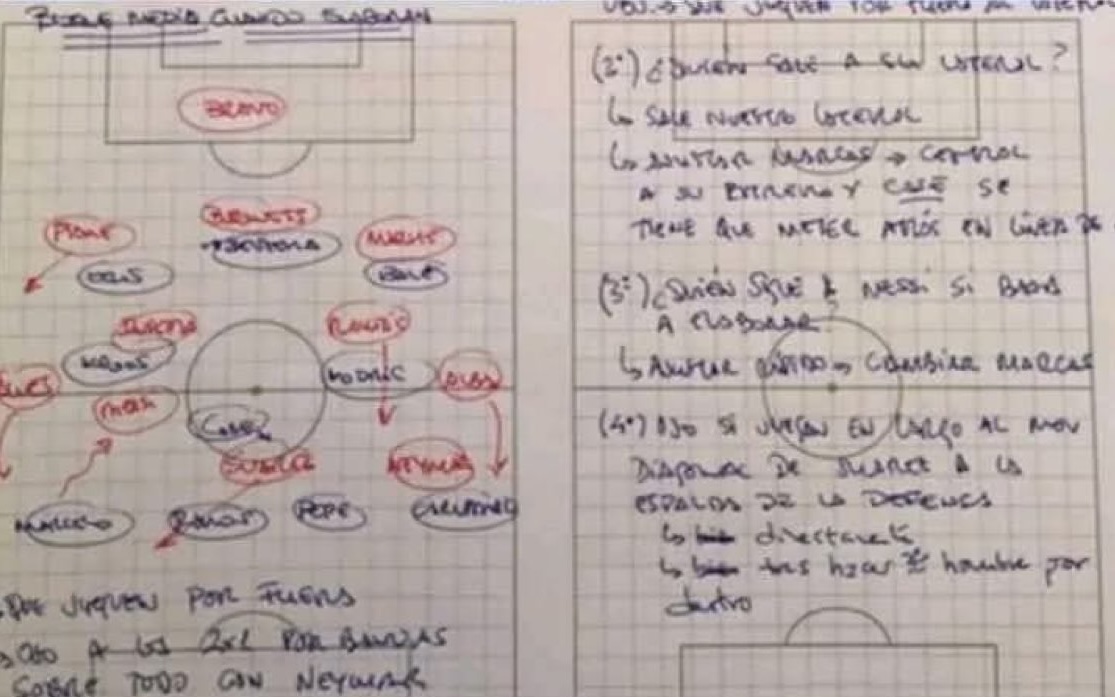 BLOQUE MEDIO CUANDO ELABORAN
BRAVO
BUSQUETS
PIQUE
BENZEMA
CRIS
BALE
INIESTA
KROOS
MODRIC
ALBA
ALVES
MESSI
CASE
SUAREZ
NEYMAR
MARCELO
RAMOS
PEPE
CARVAJAL
QUE JUEGUEN POR FUERA
OJO A LOS 2x1 POR BANDAS
SOBRE TODO CON NEYMAR
QUE JUEGUEN POR FUERA AL LATERAL
(2º) ¿QUIEN SALE A SU LATERAL?
↳ SALE NUESTRO LATERAL
↳ AJUSTAR MARCAS → CENTRAL
A SU EXTREMO Y CASE SE
TIENE QUE METER ATRÁS EN LÍNEA DE
(3º) ¿QUIÉN SIGUE A MESSI SI BAJA
A ELABORAR?
↳ AJUSTAR RÁPIDO → CAMBIAR MARCAS
(4º) OJO SI JUEGAN EN LARGO AL MOV
DIAGONAL DE SUAREZ A LA
ESPALDA DE LA DEFENSA
↳ directamente
↳ tras hacer hombre por
dentro